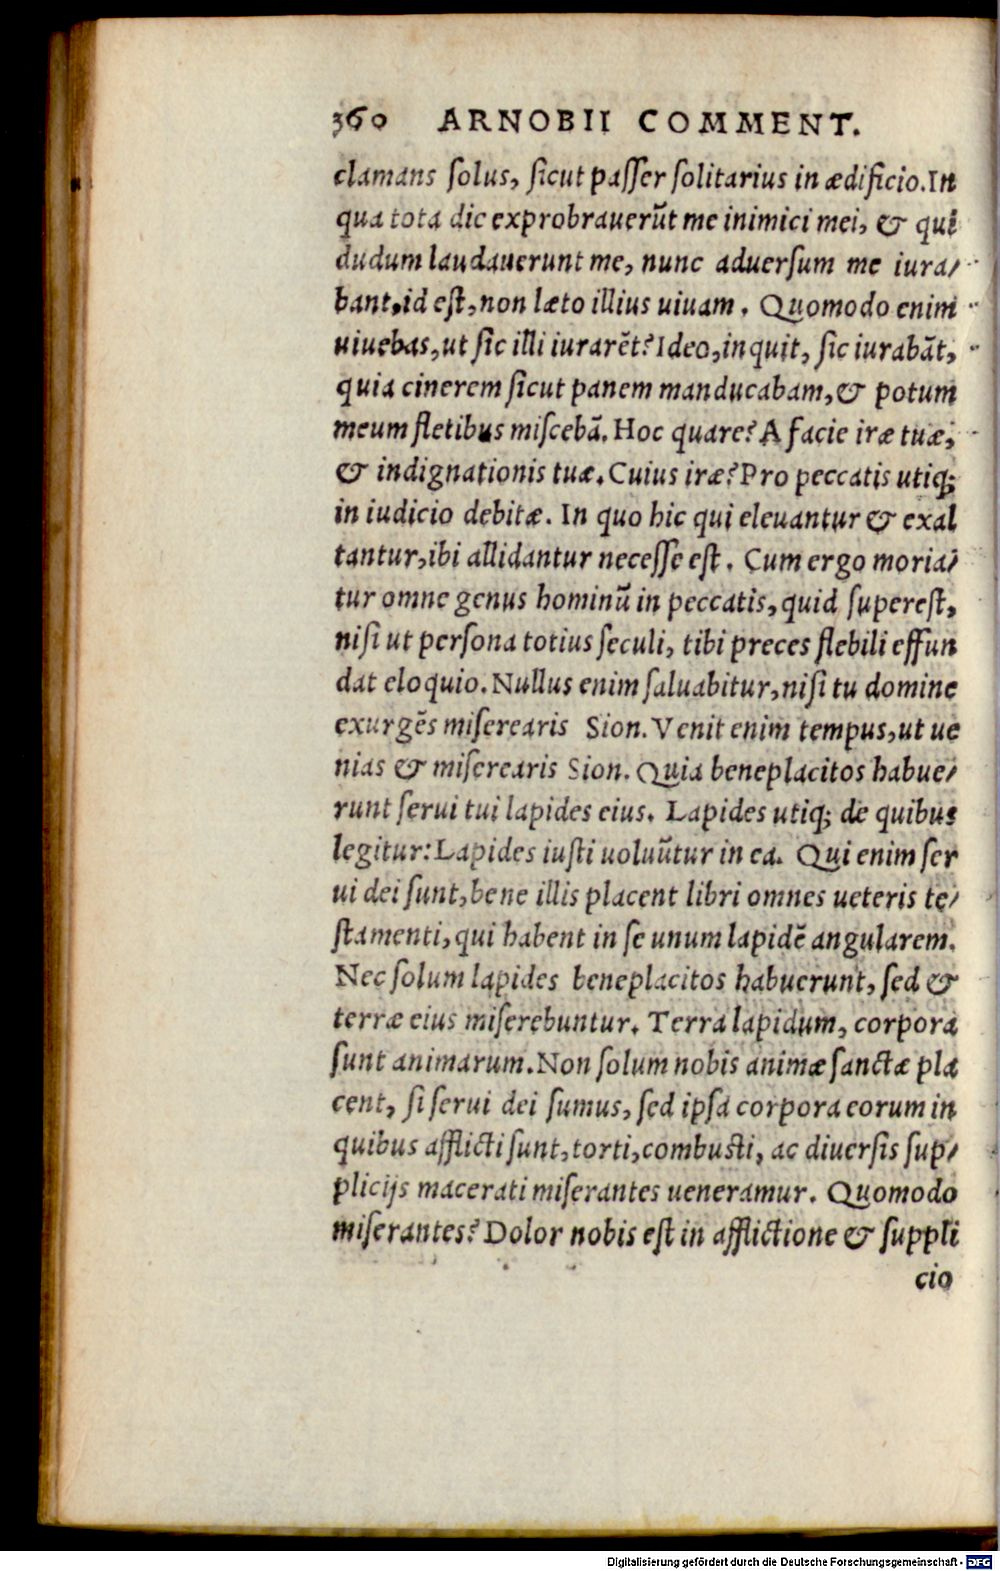 360 ARNOBII COMMENT.
clamans solus, sicut passer solitarius in ædificio. In
qua tota die exprobrauerũt me inimici mei, & qui
dudum laudauerunt me, nunc aduersum me iura/
bant, id est, non læto illius uiuam. Quomodo enim
uiuebas, ut sic illi iurarẽt? Ideo, inquit, sic iurabãt,
quia cinerem sicut panem manducabam, & potum
meum fletibus miscebã. Hoc quare? A facie iræ tuæ,
& indignationis tuæ. Cuius iræ? Pro peccatis utiq;
in iudicio debitæ. In quo hic qui eleuantur & exal
tantur, ibi allidantur necesse est. Cum ergo moria/
tur omne genus hominũ in peccatis, quid superest,
nisi ut persona totius seculi, tibi preces flebili effun
dat eloquio. Nullus enim saluabitur, nisi tu domine
exurgẽs miserearis Sion. Venit enim tempus, ut ue
nias & miserearis Sion. Quia beneplacitos habue/
runt serui tui lapides eius. Lapides utiq; de quibus
legitur: Lapides iusti uoluũtur in ea. Qui enim ser
ui dei sunt, bene illis placent libri omnes ueteris te/
stamenti, qui habent in se unum lapidẽ angularem.
Nec solum lapides beneplacitos habuerunt, sed &
terræ eius miserebuntur. Terra lapidum, corpora
sunt animarum. Non solum nobis animæ sanctæ pla
cent, si serui dei sumus, sed ipsa corpora eorum in
quibus afflicti sunt, torti, combusti, ac diuersis sup/
plicijs macerati miserantes ueneramur. Quomodo
miserantes? Dolor nobis est in afflictione & suppli
cio
Digitalisierung gefördert durch die Deutsche Forschungsgemeinschaft - DFG